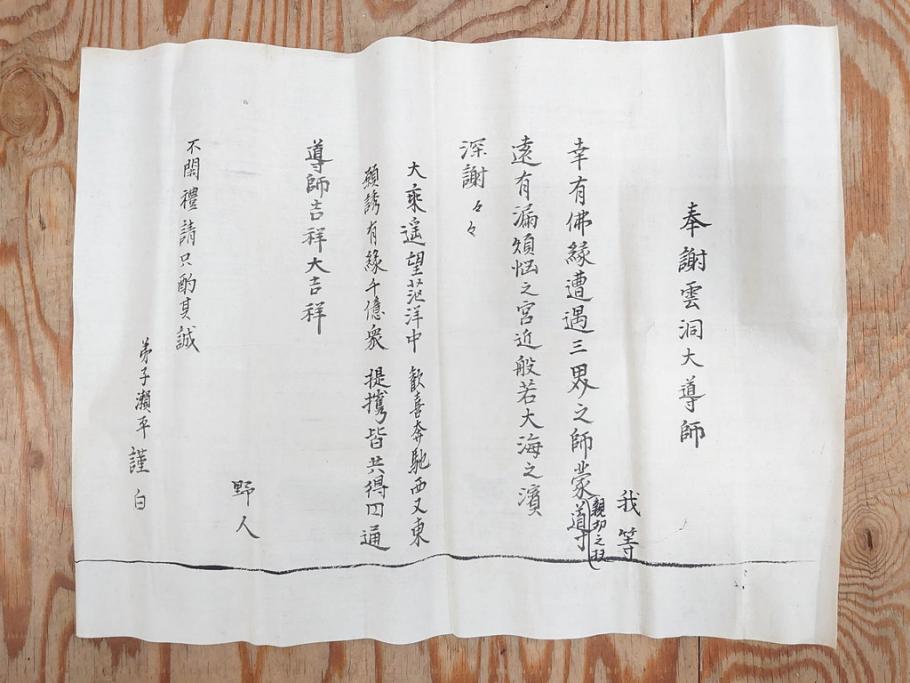 奉謝雲洞大導師
我等
幸有佛緣遭遇三界之師蒙導
親切之
遠有漏煩惱之宮近般若大海之濱
深謝々々
大乘遥望茫洋中 歡喜奔馳西又東
願誘有緣千億衆 提携皆共得円通
導師吉祥大吉祥
野人
不閑禮請只酌其誠
弟子瀬平謹白